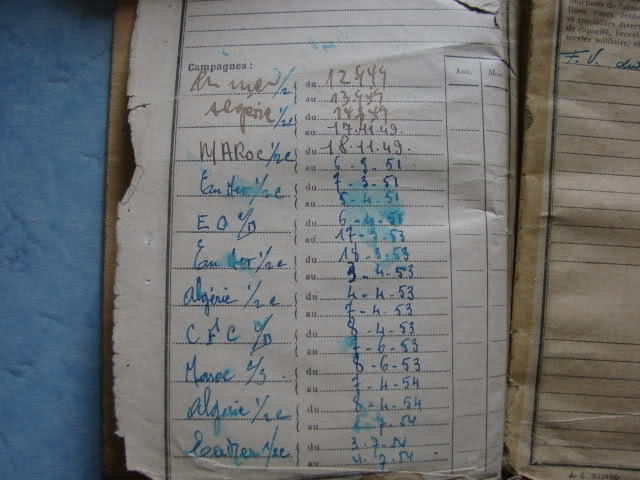 Campagnes :
Aux. Mon.
En mer 1/2 du 12.9.49
au 13.9.49
Algérie 1/2c du
au 17.11.49
MAROC 1/2c du 18.11.49
au 6-3-51
En mer 1/2c du 7-3-51
au 5-4-51
EO c/D du 6-4-51
au 17-3-53
En mer 1/2c du 18-3-53
au 3-4-53
Algérie 1/2c du 4-4-53
au 7-4-53
C F C c/D du 8-4-53
au 7-6-53
Maroc c/s du 8-6-53
au 7-4-54
Algérie 1/2c du 8-4-54
au 2-7-54
En mer 1/2c du 3-7-54
au 4-7-54
de capacité, brevet
service militaire,